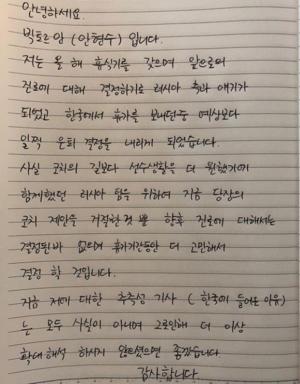 안녕하세요.
빅토르 안 (안현수) 입니다.
저는 올 해 휴식기를 갖으며 앞으로의
진로에 대해 결정하기로 러시아 측과 얘기가
되었고 한국에서 휴가를 보내던중 예상보다
일찍 은퇴 결정을 내리게 되었습니다.
사실 코치의 길보다 선수생활을 더 원했기에
함께했던 러시아 팀을 위하여 지금 당장의
코치 제안을 거절한것 뿐 향후 진로에 대해서는
결정된바 없으며 휴가기간동안 더 고민해서
결정 할 것입니다.
지금 저에 대한 추측성 기사 ( 한국에 들어온 이유)
는 모두 사실이 아니며 그로인해 더 이상
확대 해석 하시지 않으셨으면 좋겠습니다
감사합니다